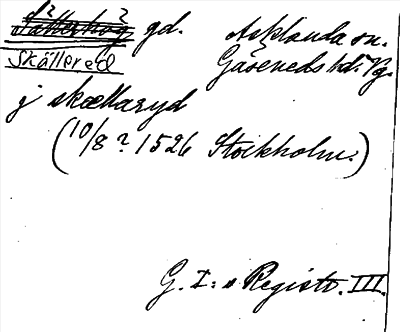 Sätterhög gd. Asklanda sn.
Skällered Gäseneds hd. Vg.
j skællaryd
(10/8? 1526 Stockholm.)
G. I:s Registr. III.